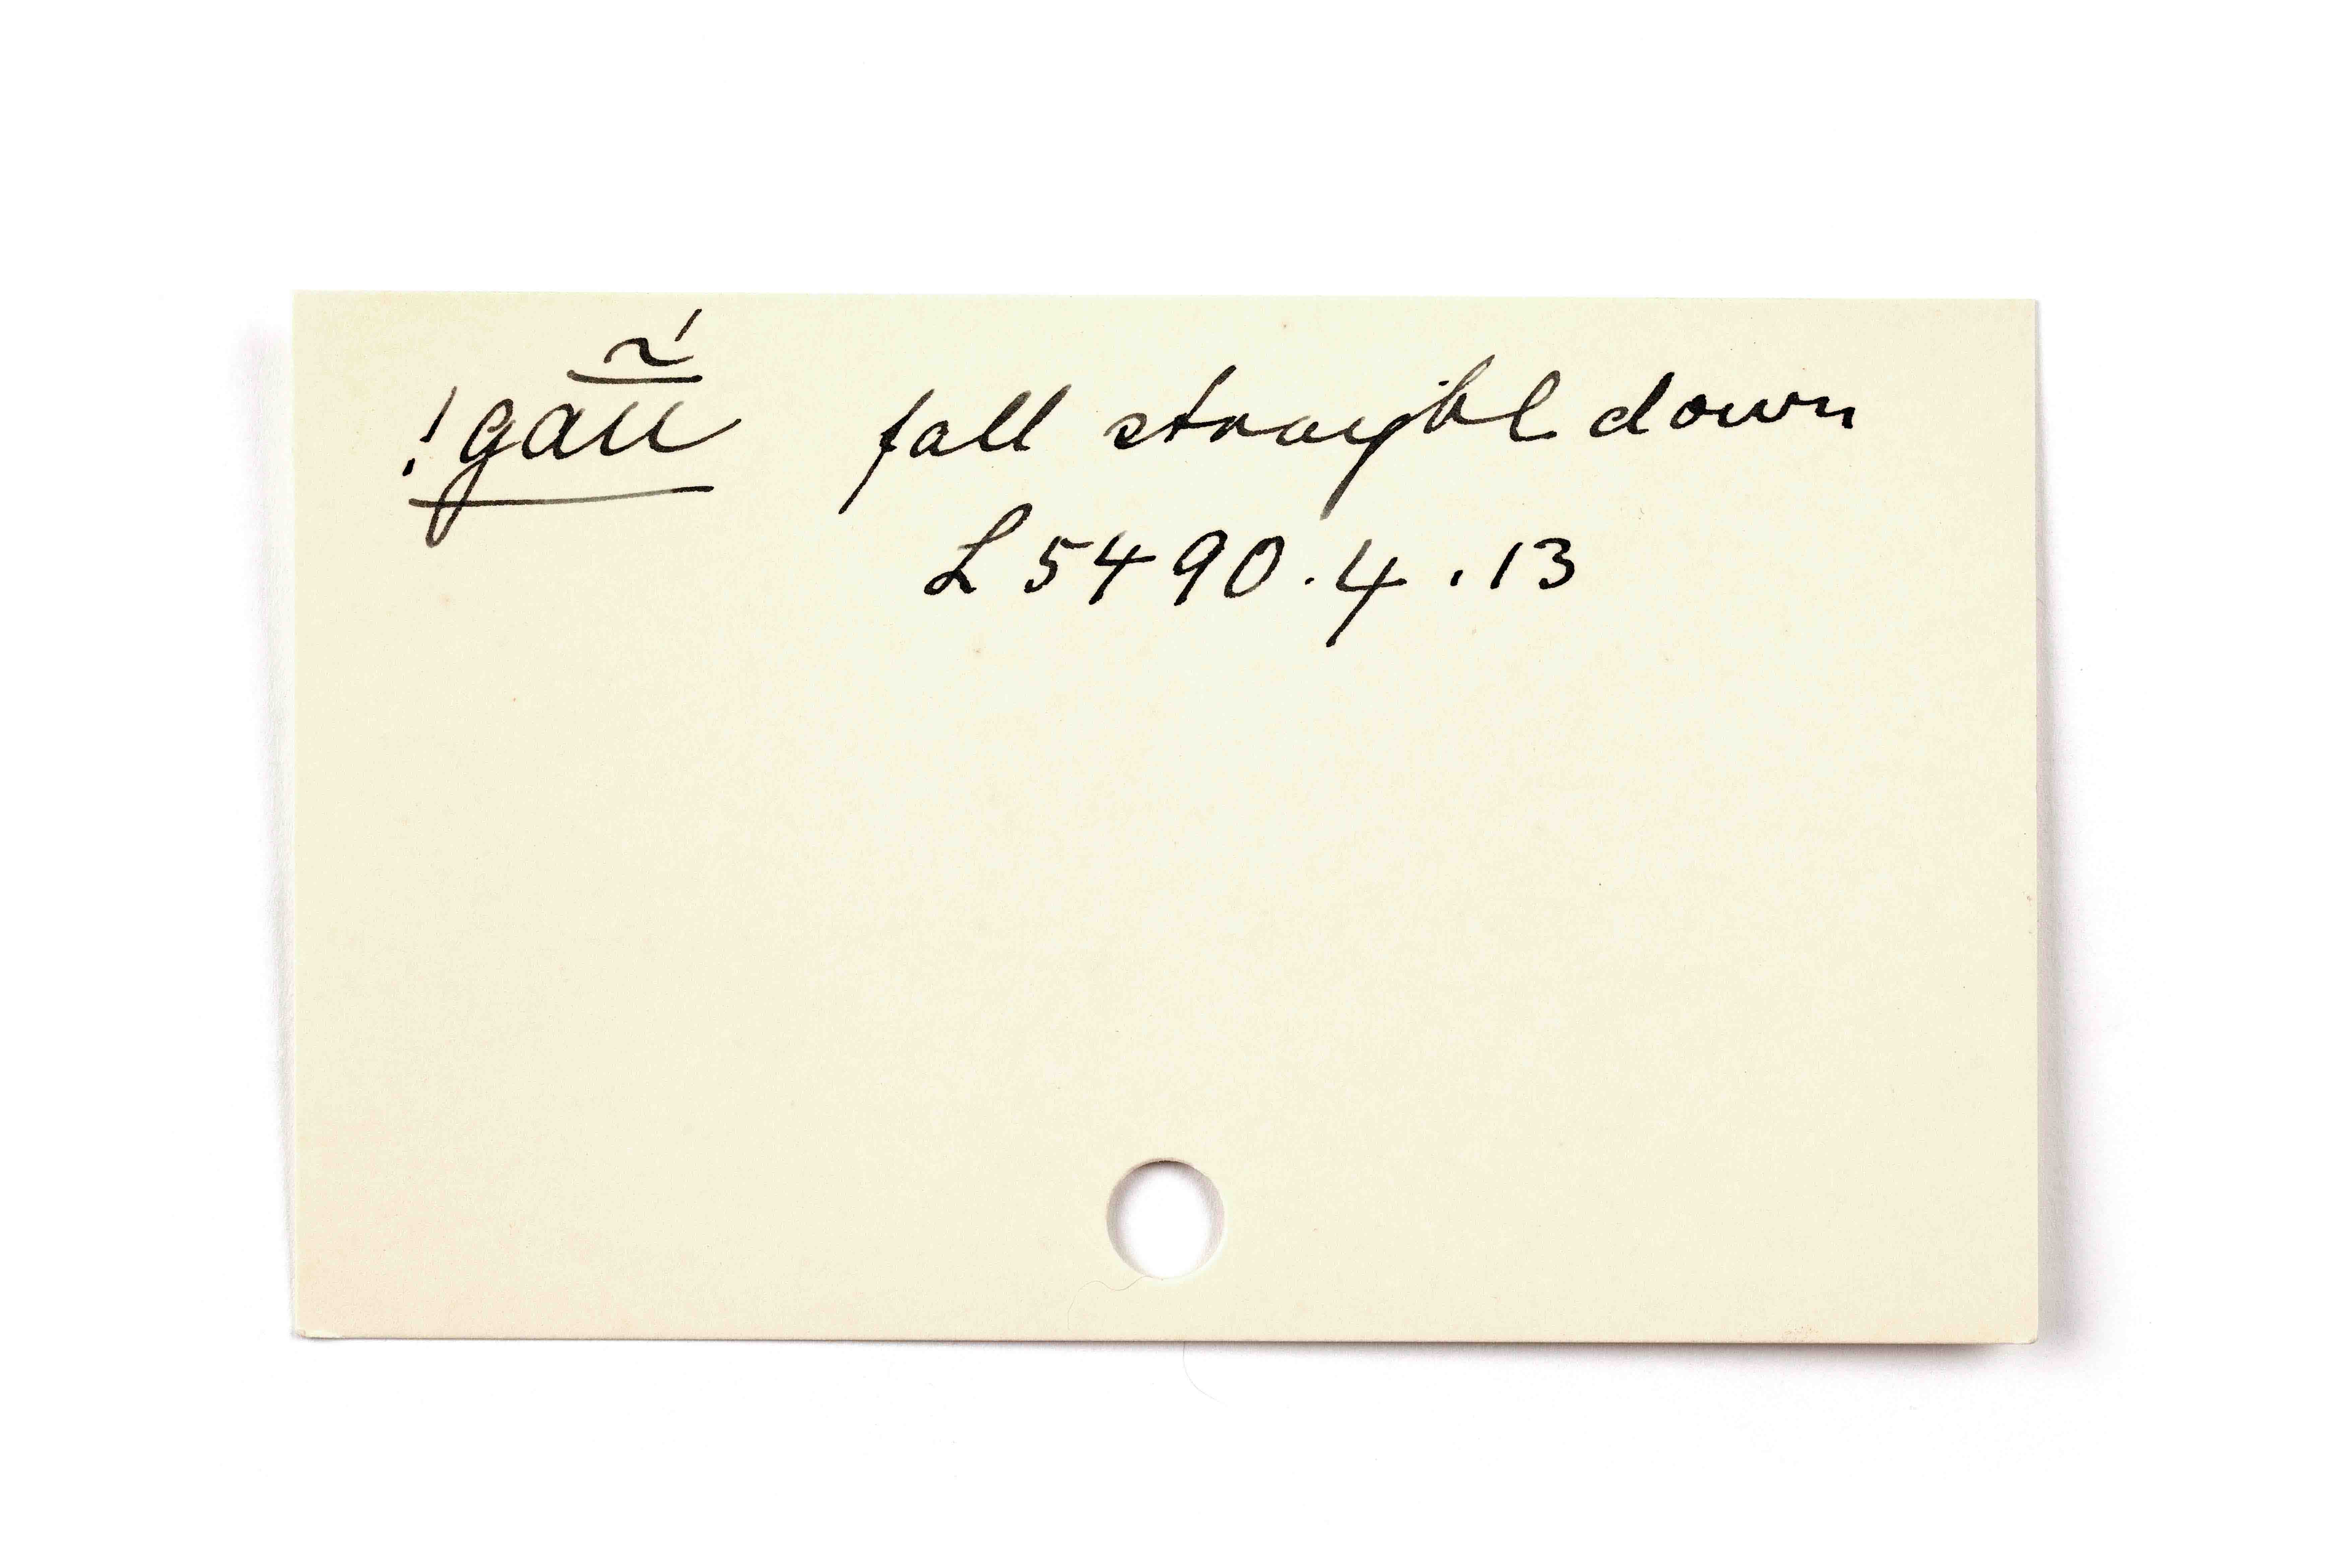 !gaū̃́ fall straight down
L 5490.4.13